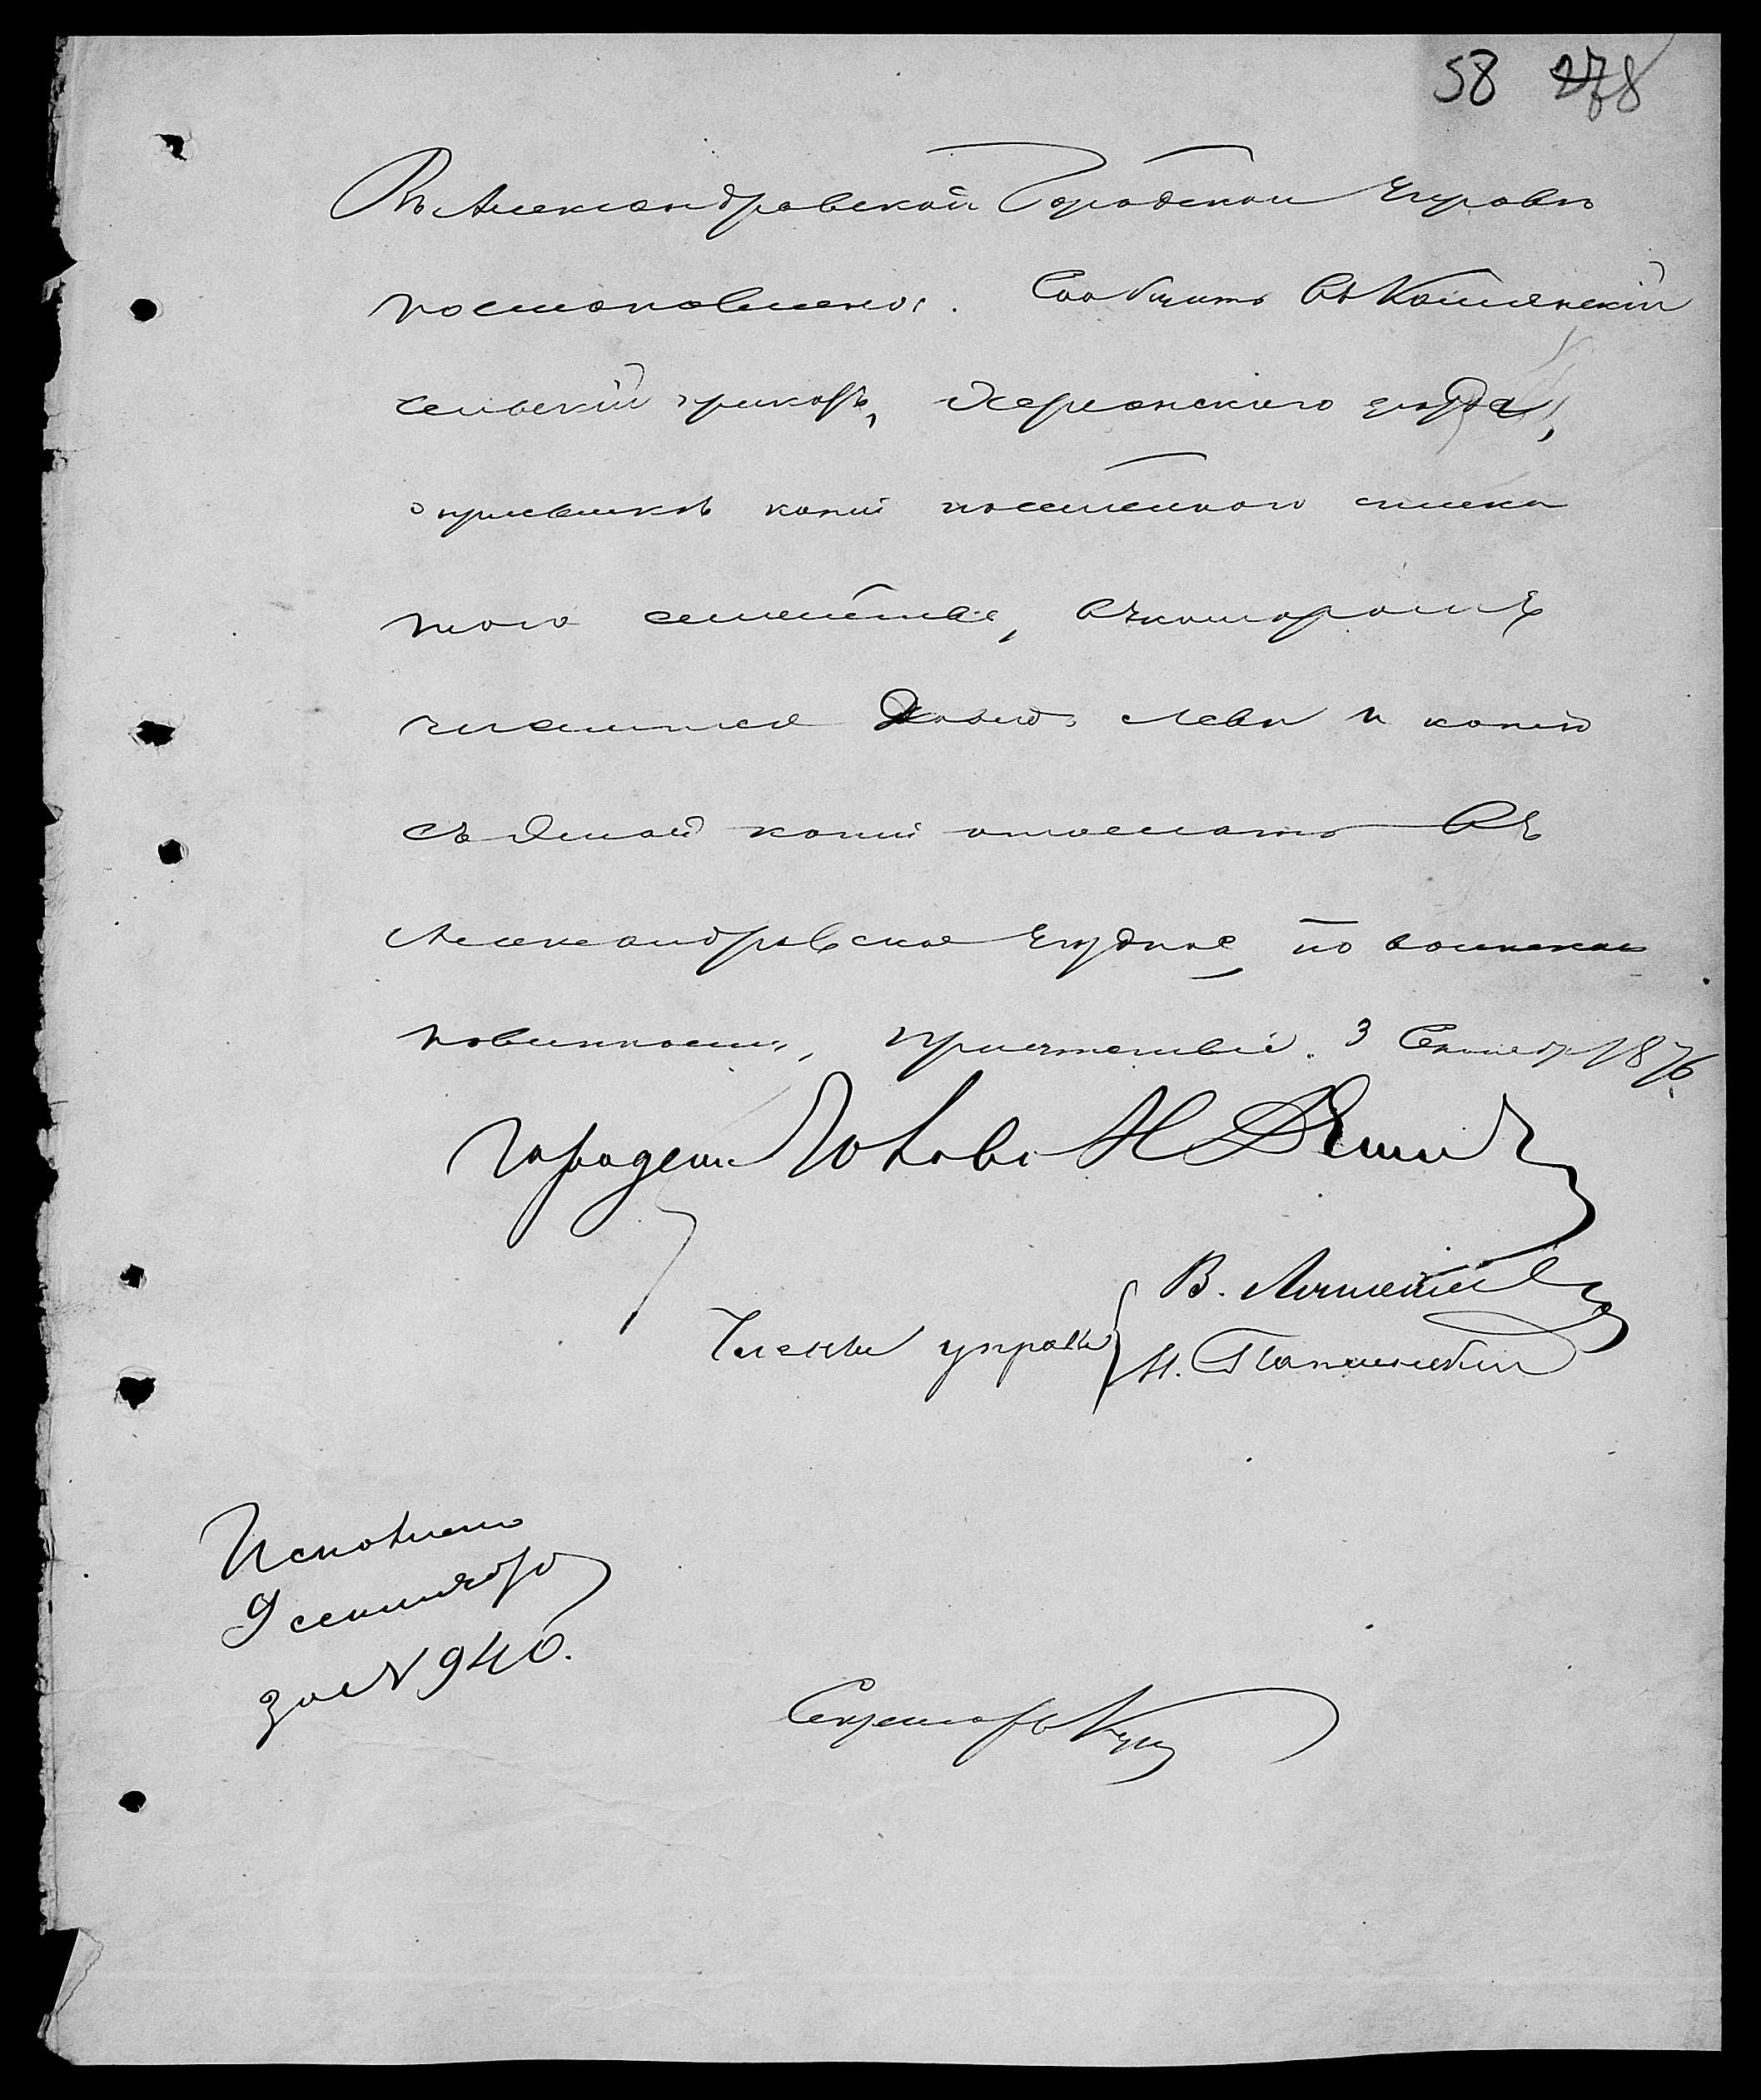 58 278
Въ Александровской Городской Управѣ
постановлено: Сообщить въ Каменскій
сельскій приказъ, Херсонскаго уѣзда,
о присылкѣ копіи посемейнаго списка
того семейства, въ которомъ
числится Давидъ Леви и копію
съ оной копіи отослать въ
Александровское уѣздное, по воинской
повинности, присутствіе. 3 Сентября 1876
Городской Голова Н.
Члены управы В.
Н.
Исполнено
9 сентября
за № 940.
Секретарь